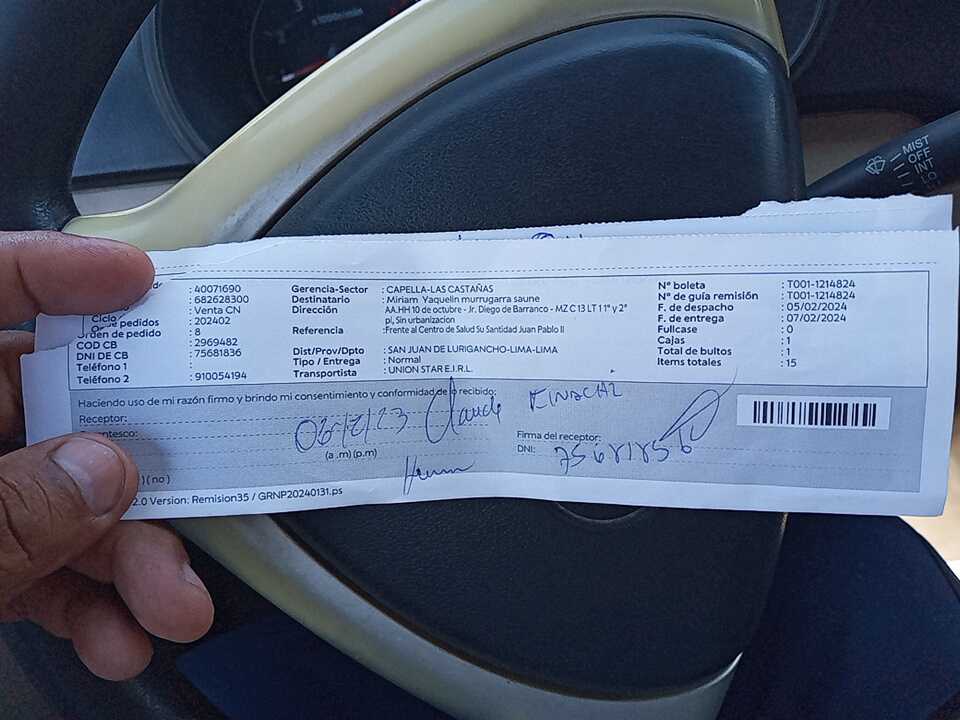 : 40071690
: 682628300
: Venta CN
Ciclo
de pedidos : 202402
Orden de pedido : 8
COD CB : 2969482
DNI DE CB : 75681836
Teléfono 1 :
Teléfono 2 : 910054194
Gerencia-Sector : CAPELLA-LAS CASTAÑAS
Destinatario : Miriam Yaquelin murrugarra saune
Dirección AA.HH 10 de octubre - Jr. Diego de Barranco - MZ C 13 LT 11 1° y 2°
pi, Sin urbanizacion
Referencia : Frente al Centro de Salud Su Santidad Juan Pablo II
Dist/Prov/Dpto : SAN JUAN DE LURIGANCHO-LIMA-LIMA
Tipo / Entrega : Normal
Transportista : UNION STAR E.I.R.L.
N° boleta : T001-1214824
N° de guía remisión : T001-1214824
F. de despacho : 05/02/2024
F. de entrega : 07/02/2024
Fullcase : 0
Cajas : 1
Total de bultos : 1
Items totales : 15
Haciendo uso de mi razón firmo y brindo mi consentimiento y conformidad de lo recibido:
Receptor:
(a .m) (p.m)
Firma del receptor:
DNI:
) ( no )
2.0 Version: Remision35 / GRNP20240131.ps
MIST
OFF
INT
LO